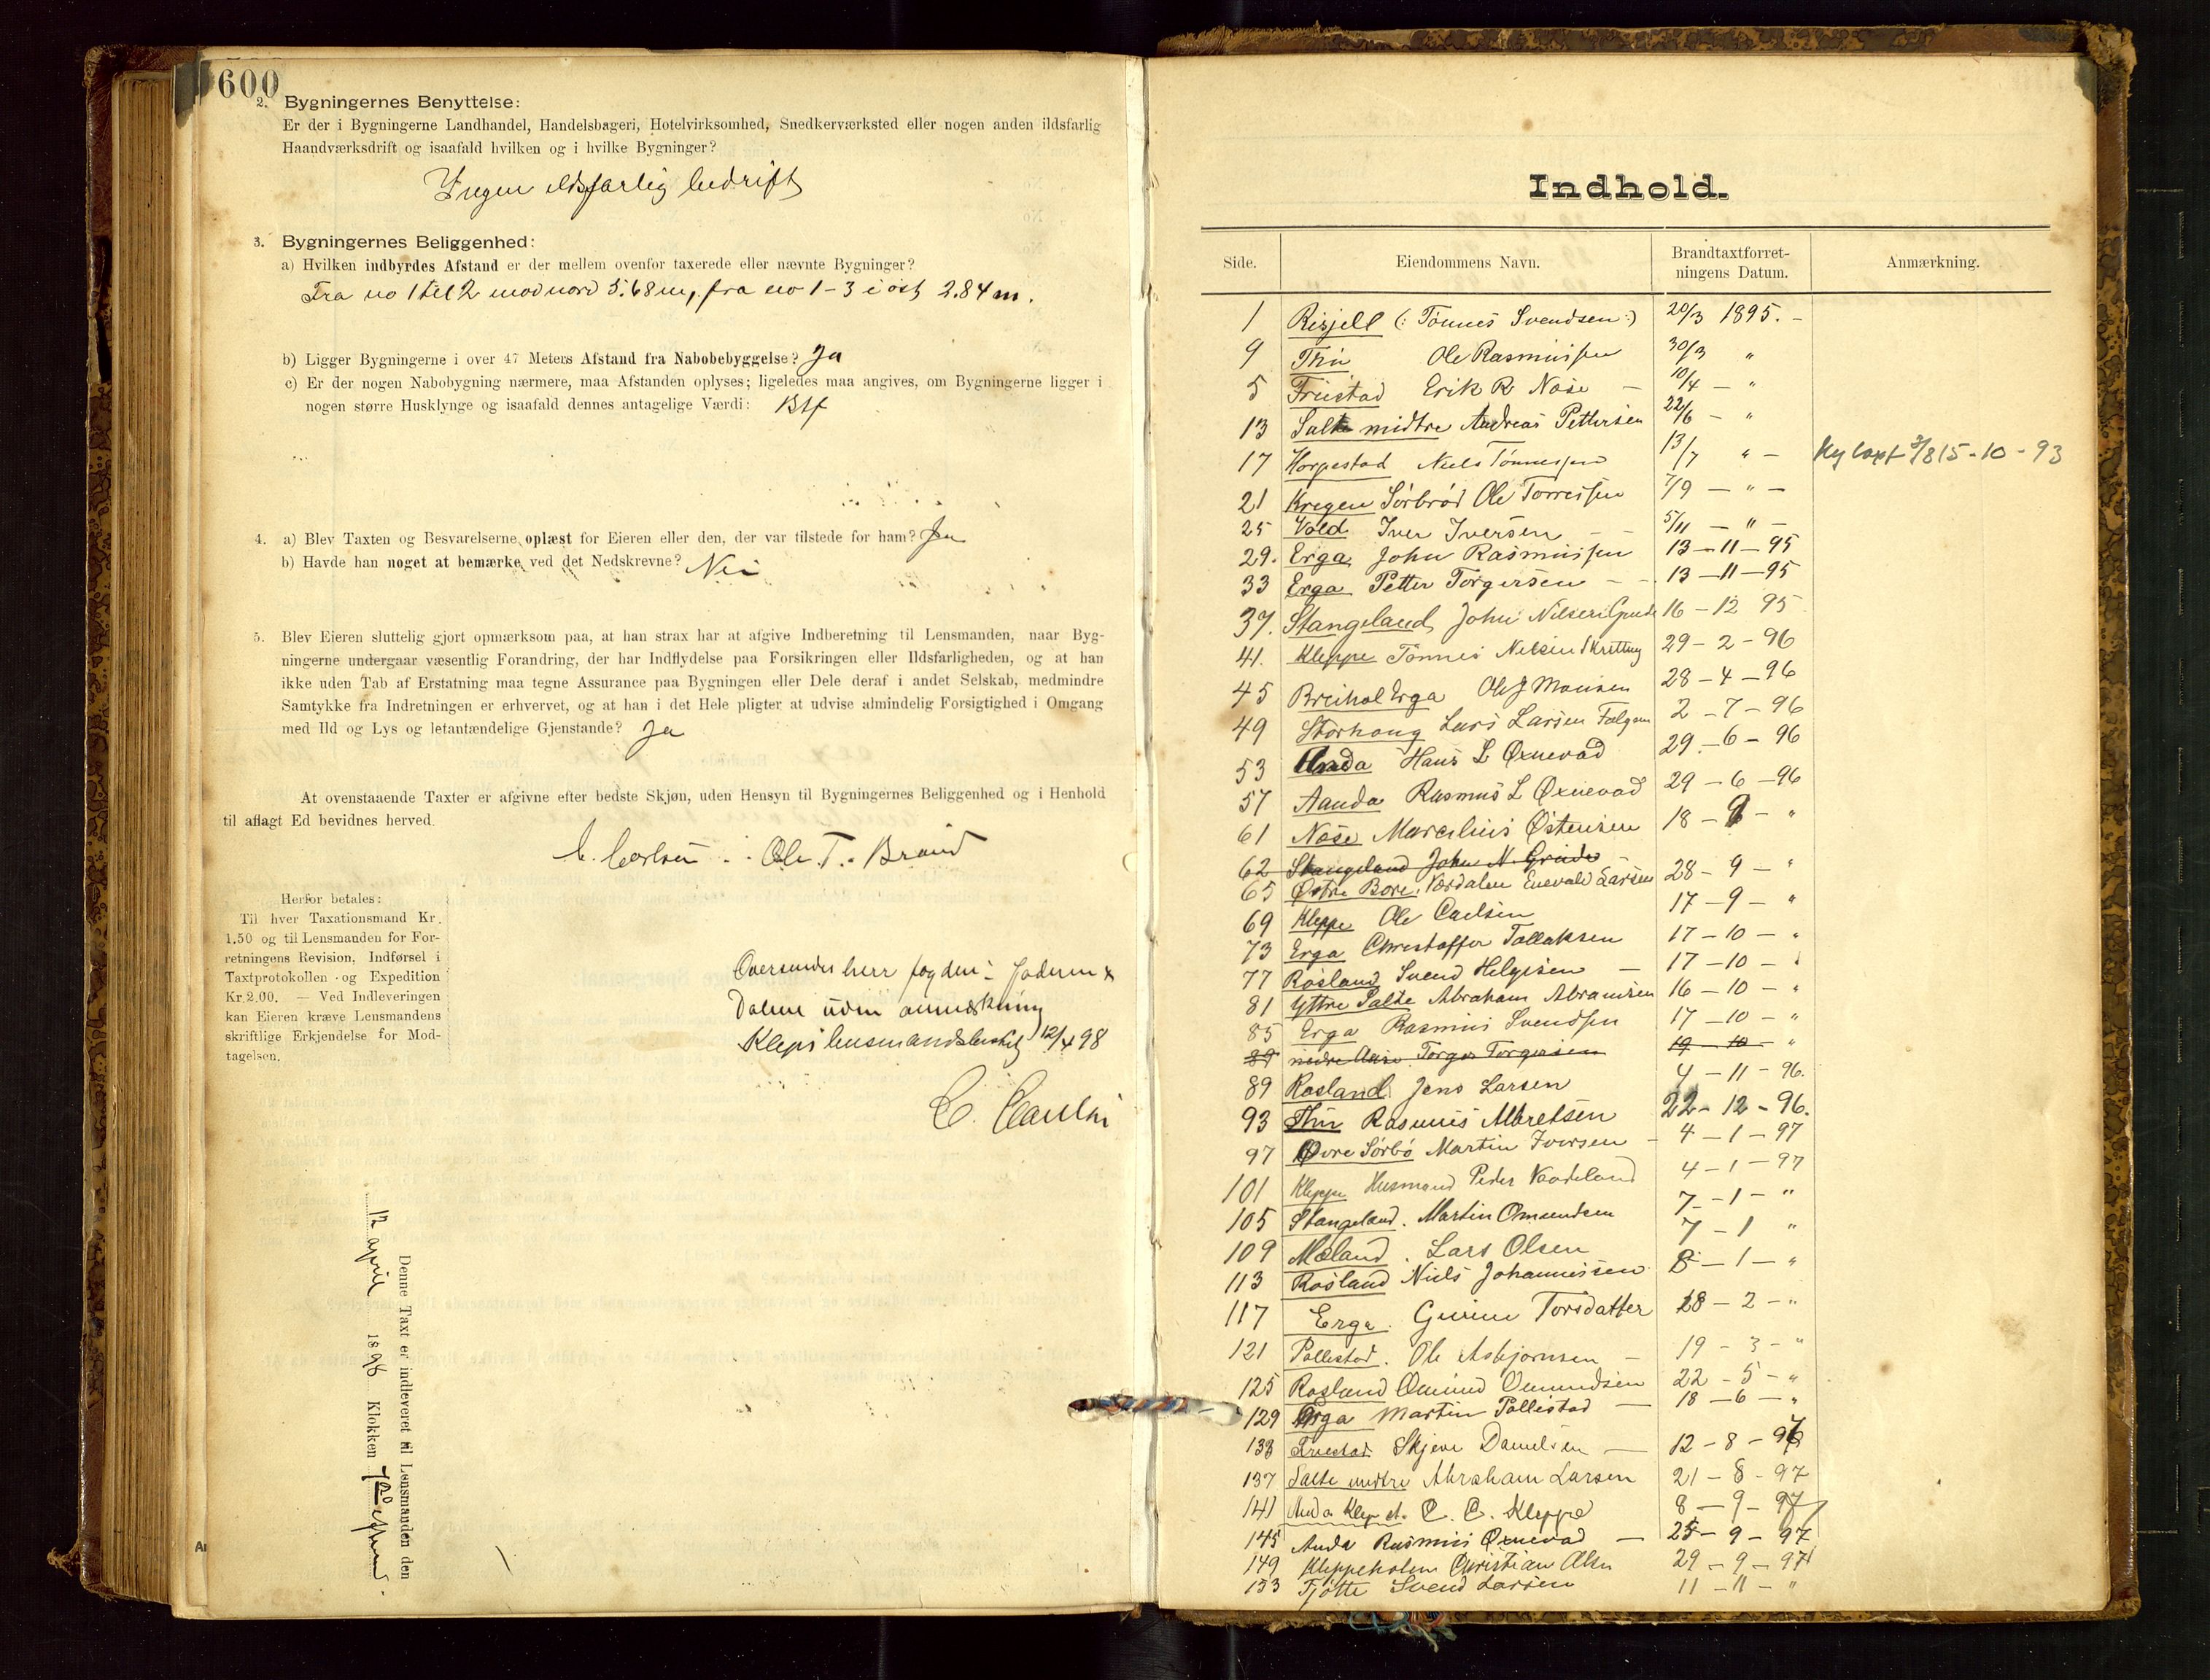 600
2. Bygningernes Benyttelse:
Er der i Bygningerne Landhandel, Handelsbageri, Hotelvirksomhed, Snedkerværksted eller nogen anden ildsfarlig
Haandværksdrift og isaafald hvilken og i hvilke Bygninger?
Ingen ildsfarlig bedrift
3. Bygningernes Beliggenhed:
a) Hvilken indbyrdes Afstand er der mellem ovenfor taxerede eller nævnte Bygninger?
Fra no 1 til 2 mod nord 5.68 m, fra no 1-3 i øst 2.84 m.
b) Ligger Bygningerne i over 47 Meters Afstand fra Nabobebyggelse? Ja
c) Er der nogen Nabobygning nærmere, maa Afstanden oplyses; ligeledes maa angives, om Bygningerne ligger i
nogen større Husklynge og isaafald dennes antagelige Værdi:
4. a) Blev Taxten og Besvarelserne oplæst for Eieren eller den, der var tilstede for ham? Ja
b) Havde han noget at bemærke ved det Nedskrevne? Nei
5. Blev Eieren sluttelig gjort opmærksom paa, at han strax har at afgive Indberetning til Lensmanden, naar Byg-
ningerne undergaar væsentlig Forandring, der har Indflydelse paa Forsikringen eller Ildsfarligheden, og at han
ikke uden Tab af Erstatning maa tegne Assurance paa Bygningen eller Dele deraf i andet Selskab, medmindre
Samtykke fra Indretningen er erhvervet, og at han i det Hele pligter at udvise almindelig Forsigtighed i Omgang
med Ild og Lys og letantændelige Gjenstande? Ja
At ovenstaaende Taxter er afgivne efter bedste Skjøn, uden Hensyn til Bygningernes Beliggenhed og i Henhold
til aflagt Ed bevidnes herved.
Ole T. Braud
Herfor betales:
Til hver Taxationsmand Kr.
1.50 og til Lensmanden for For-
retningens Revision, Indførsel i
Taxtprotokollen og Expedition
Kr. 2.00. — Ved Indleveringen
kan Eieren kræve Lensmandens
skriftlige Erkjendelse for Mod-
tagelsen.
Oversendes herr fogden i Jæderen &
Dalene uden anmerkning
Klepps lensmandsbestil 12/4 98
Denne Taxt er indleveret til Lensmanden den
12 april 1898 Klokken
Indhold.
Side. Eiendommens Navn. Brandtaxtforret-
ningens Datum. Anmærkning.
1 Risjell (: Tønnes Svendsen :) 20/3 1895. -
9 Thu Ole Rasmussen 30/3 "
5 Friestad Erik R Nøse - 10/4 - "
13 Salte midtre Andreas Pettersen 22/6 - "
17 Horpestad Niels Tønnesen 13/7 " - Ny taxt 15-10-93
21 Krogen Sørbrød Ole Torresen 7/9 - " -
25 Vold Iver Iversen - 5/11 - " -
29. Erga John Rasmussen 13-11-95
33 Erga Petter Torgersen - 13-11-95
37. Stangeland John Nilsen Grude 16-12 95
41. Kleppe Tønnes Nilsen Skretting 29-2-96
45 Breihol Erga Ole J Monsen 28-4-96
49 Storhaug Lars Larsen 2-7-96
53 Anda Hans L Øxnevad 29-6-96
57 Aanda Rasmus L Øxnevad 29-6-96
61 Nøse Marselius Østensen 18-9- "
62 Stangeland John N. Grude
65 Østre Bore, Værdalen Enevald Larsen 28-9- "
69 Kleppe Ole Carlsen 17-9- "
73 Erga Christoffer Tollaksen 17-10- "
77 Rosland Svend Helgesen - 17-10- "
81 Yttre Salte Abraham Abramsen 16-10- "
85 Erga Rasmus Svendsen 17-10- "
89 nedre Torger Torgersen 19-10- "
89 Rosland Jens Larsen 4-11-96.
93 Thu Rasmus Albretsen 22-12-96.
97 Øvre Sørbø Martin Iversen - 4-1-97
101 Kleppe Husmand Peder Vaadeland 4-1-97
105 Stangeland. Martin Omundsen 7-1- "
109 Mæland. Lars Olsen 7-1 "
113 Rosland Niels Johannesen 8-1- "
117 Erga. Gurine Torsdatter 18-2- "
121 Pollestad. Ole Asbjørnsen - 19-3- "
125 Rosland Omund Omundsen 22-5- "
129 Erga Martin Pollestad - 18-6- "
133 Friestad Skjeve Danielsen - 12-8-97
137 Salte midtre Abraham Larsen 21-8-97
141 Anda Klep st. C. C. Kleppe 8-9-97
145 Anda Rasmus Øxnevad - 25-9-97
149 Kleppeholen Christian Olsen 29-9-97
153 Tjøtte Svend Larsen 11-11- "